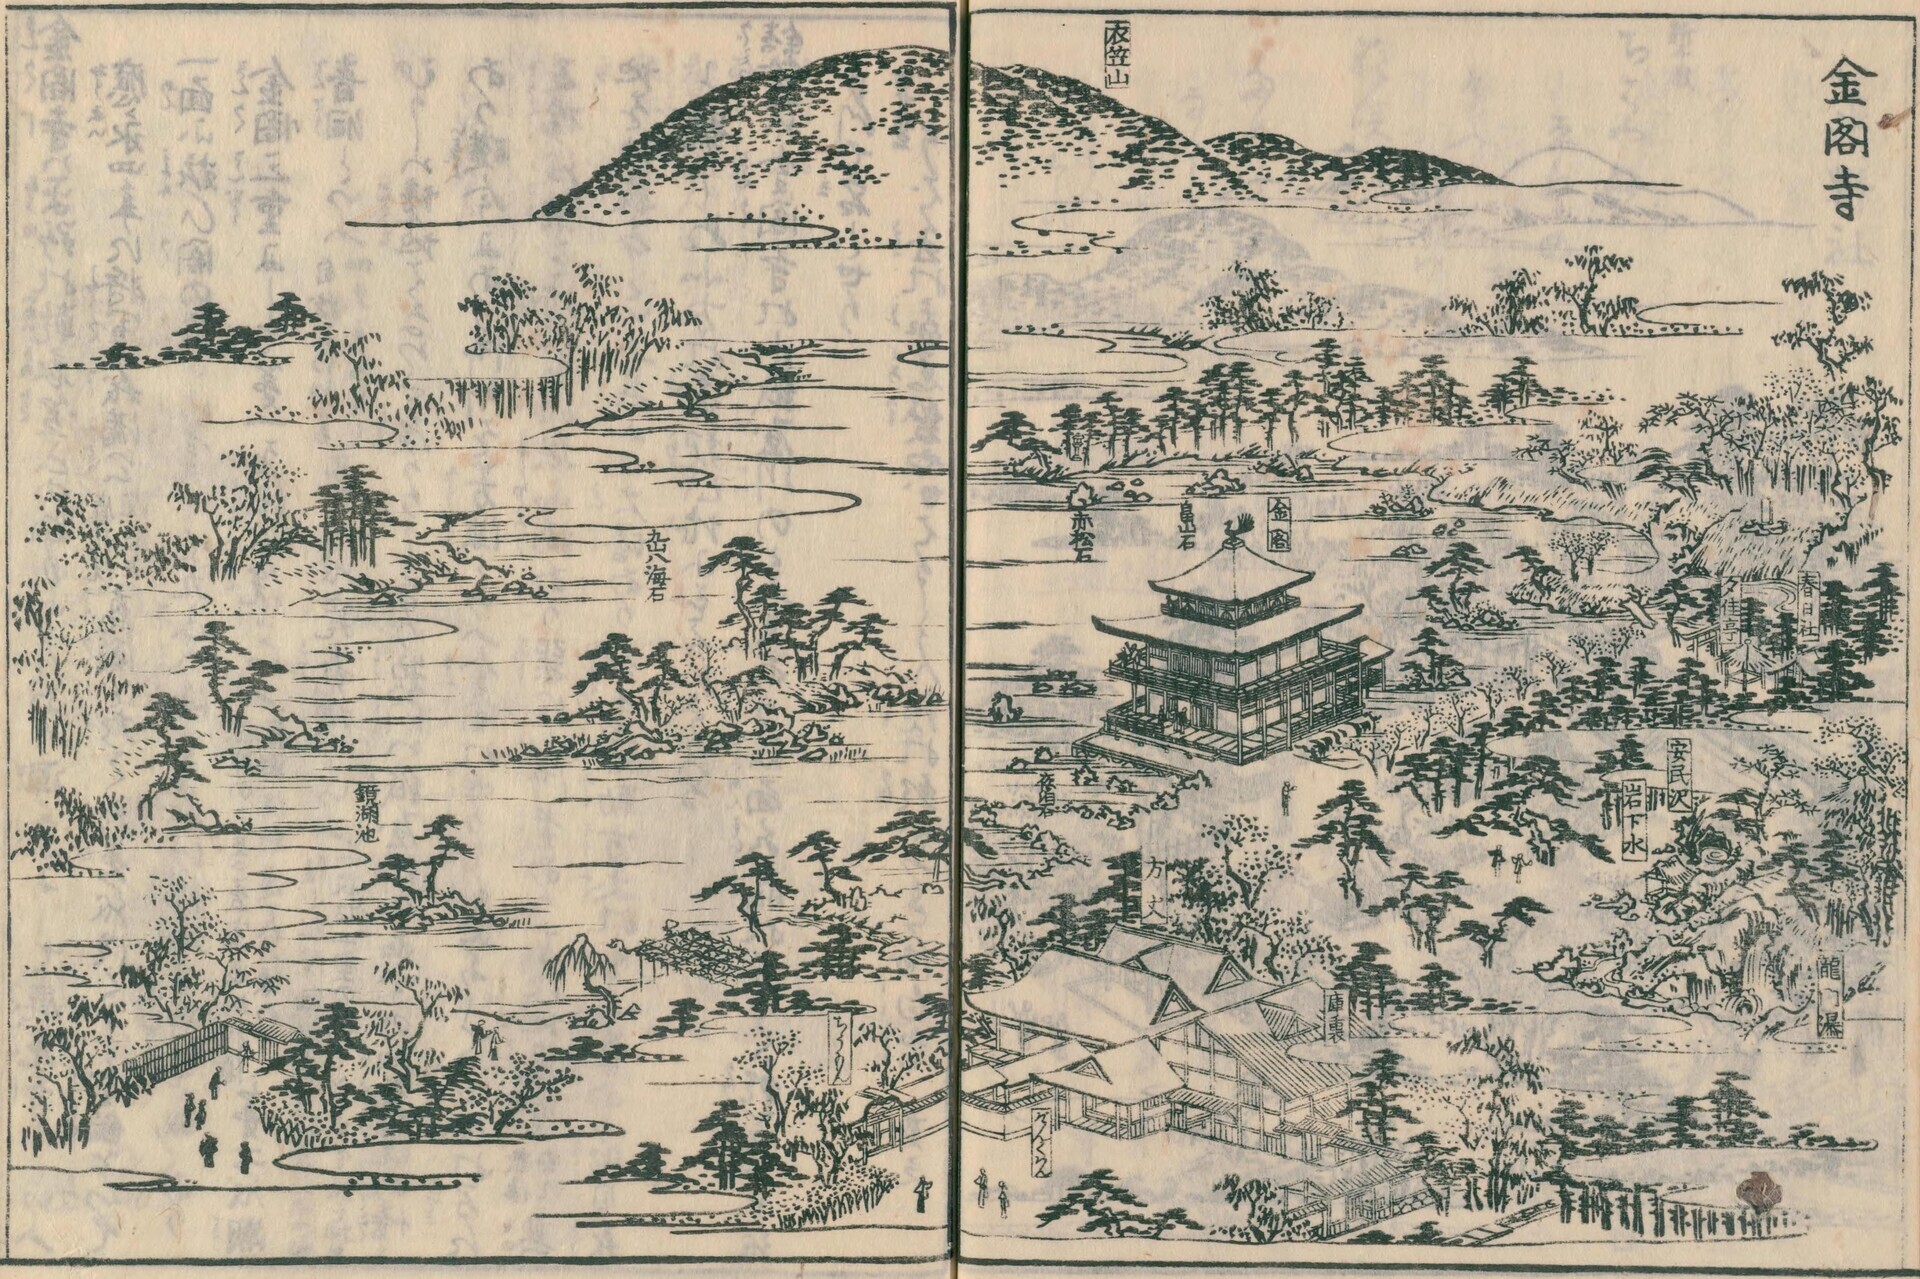 金閣寺
衣笠山
春日社
夕佳亭
龍門瀑
安民沢
岩下水
金閣
畠山石
赤松石
夜泊石
方丈
庫裏
げんくわん
九山八海石
鏡湖池